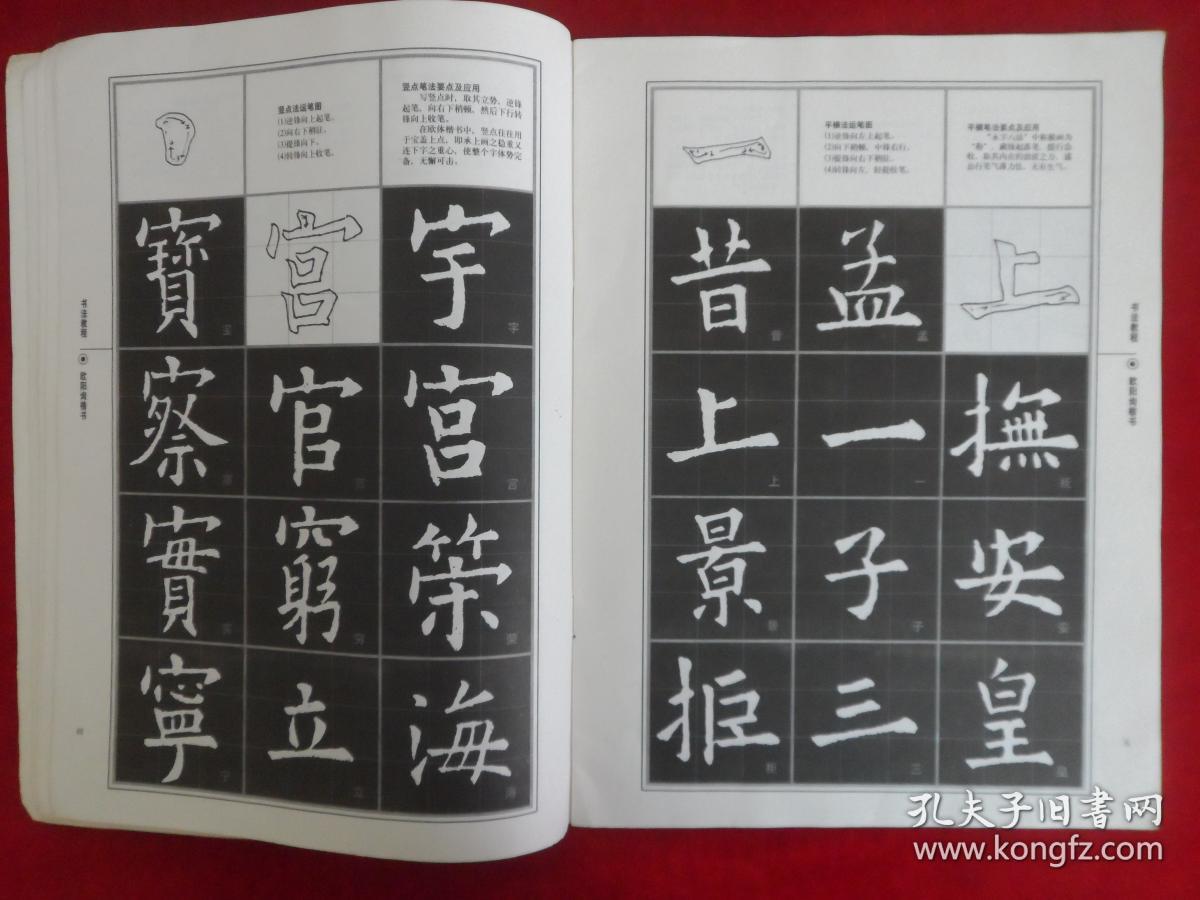 竖点法运笔图
(1)逆锋向上起笔。
(2)向右下稍驻。
(3)提锋向下。
(4)转锋向上收笔。
竖点笔法要点及应用
写竖点时，取其立势，逆锋
起笔，向右下稍顿，然后下行转
锋向上收笔。
在欧体楷书中，竖点往往用
于宝盖上点，即承上画之稳重又
连下字之重心，使整个字体势完
备，无懈可击。
寶 宫 宇
宝 宇
察 官 宫
察 官 宫
實 窮 荣
实 穷 荣
寧 立 海
宁 立 海
书法教程
欧阳询楷书
平横法运笔图
(1)逆锋向左上起笔。
(2)向下稍顿，中锋右行。
(3)提锋向右下稍驻。
(4)转锋向左，轻提收笔。
平横笔法要点及应用
昔 孟 上
昔 孟
上 一 撫
上 一 抚
景 子 安
景 子 安
拒 三 皇
三 皇
书法教程
欧阳询楷书
孔夫子旧书网
www.kongfz.com